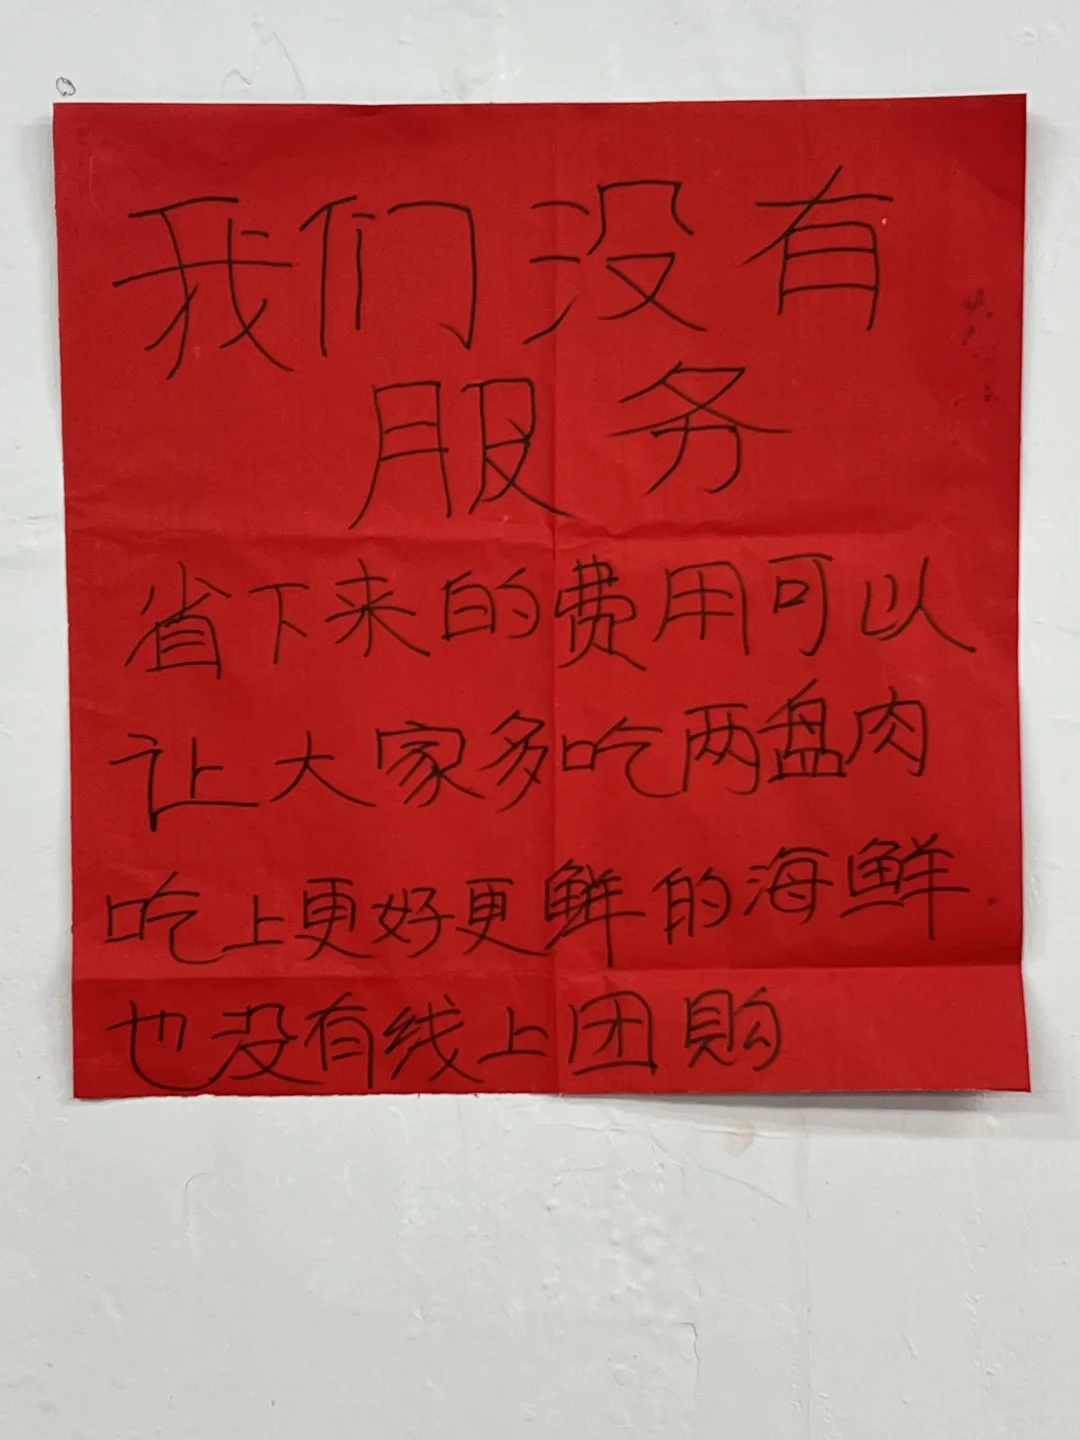 我们没有
服务
省下来的费用可以
让大家多吃两盘肉
吃上更好更鲜的海鲜
也没有线上团購